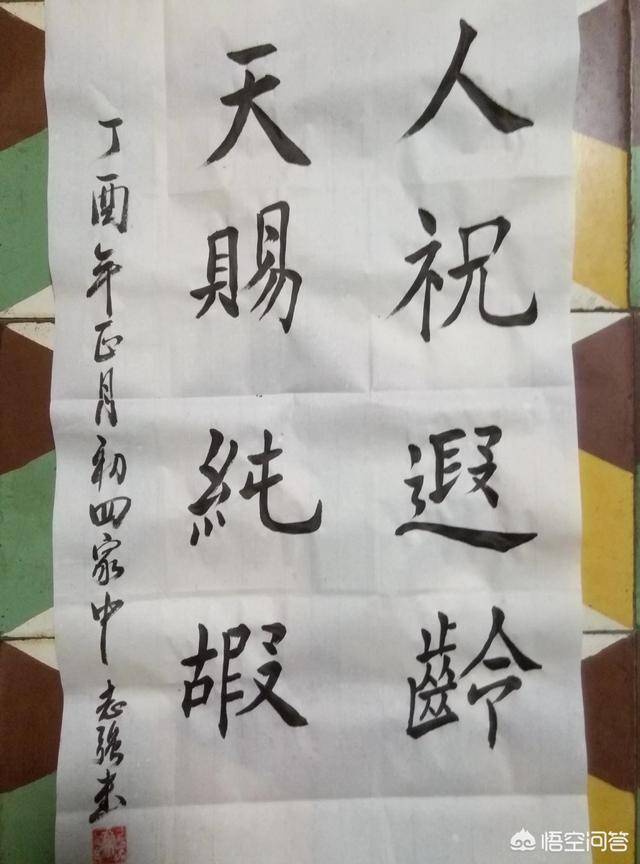 人祝遐齡
天賜純嘏
丁酉年正月初四家中志強书
悟空问答